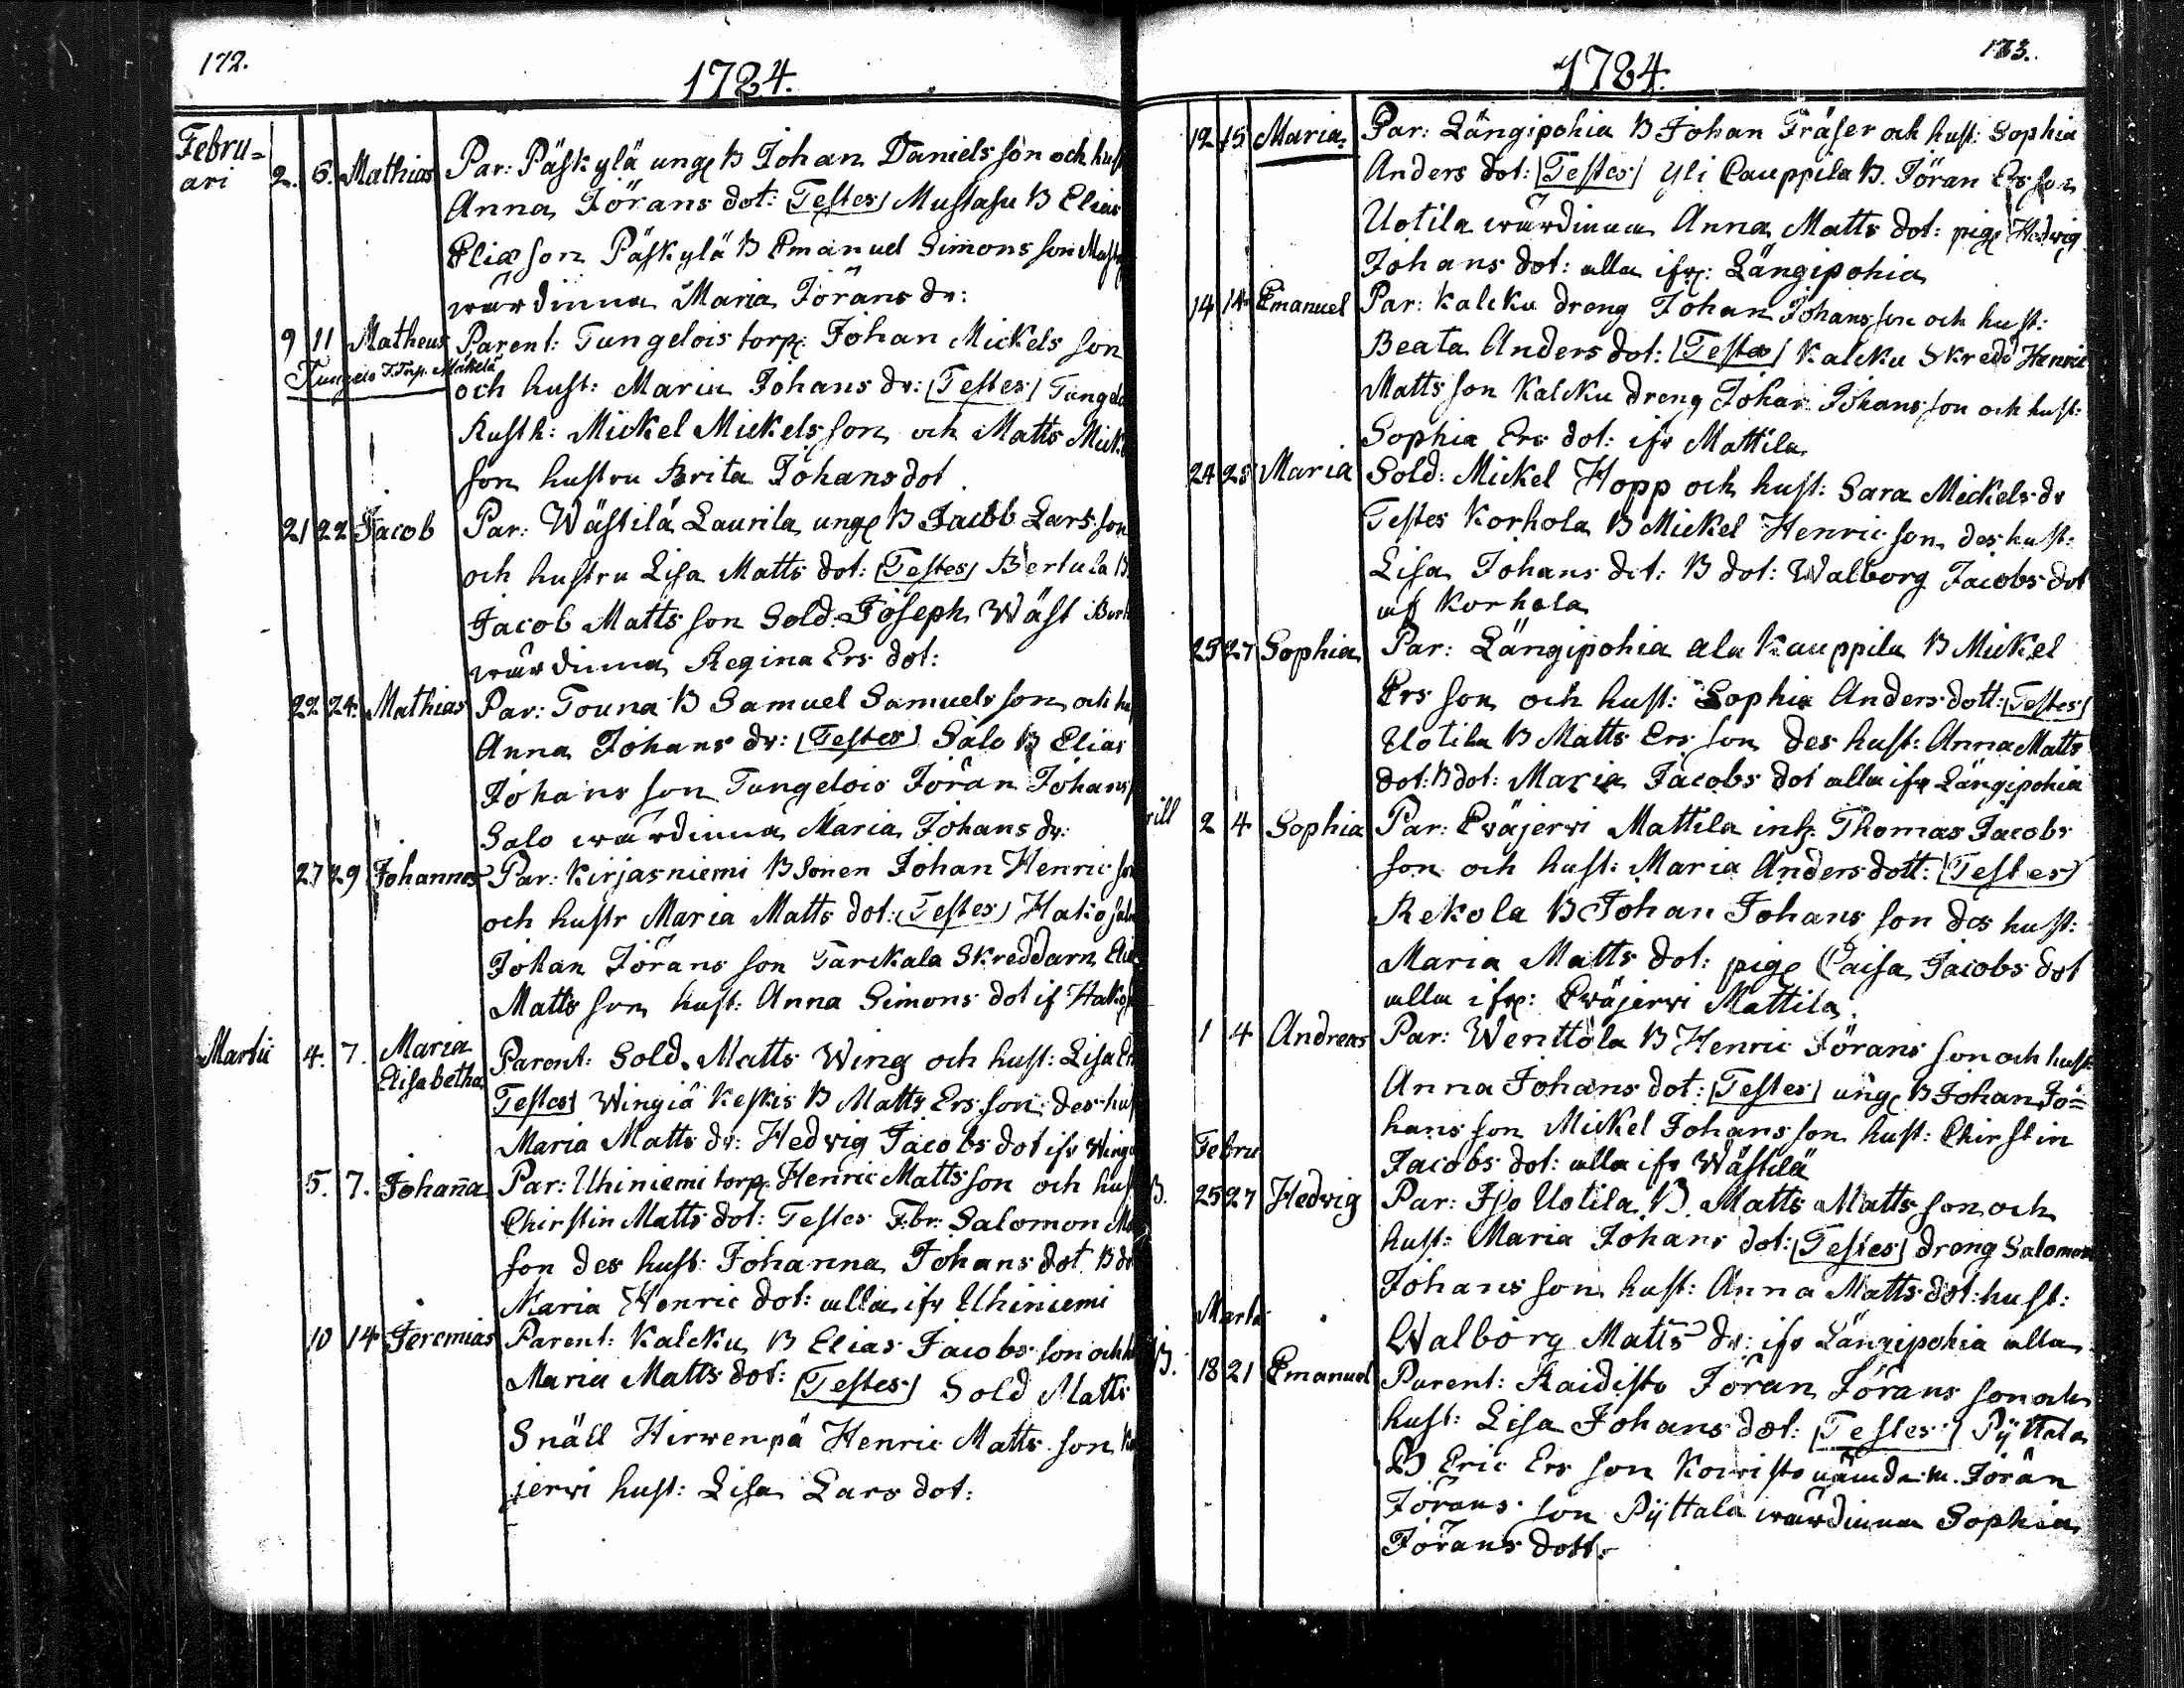 172.
1784.
Febru=
ari 2. 6. Mathias Par: Päskylä unge B Johan Daniels son och hust
Anna Jörans dot: Testes Mustasu B Elias
Eliæ son Päskylä B Emanuel Simons son
wärdinna Maria Jörans dr:
9 11 Matheus Parent: Tungelois torp: Johan Mickels son
Tungelo T. Torp. Mikelä
och hust: Maria Johans dr: Testes Tungelo
Rusth: Mickel Mickels son och Matts Mick
son hustru Brita Johans dot
21 22 Jacob Par: Wästilä Laurila unge B Jacob Lars son
och hustru Lisa Matts dot: Testes Bertula B
Jacob Matts son Sold. Joseph Wäst Bert
wärdinna Regina Ers dot:
22 24. Mathias Par: Touna B Samuel Samuels son och hu
Anna Johans dr: Testes Salo B Elias
Johans son Tungelois Jöran Johans
Salo wärdinna Maria Johans dr:
27 29 Johannes Par: Kirjasniemi B Sonen Johan Henric son
och hustr Maria Matts dot: Testes Hakosalo
Johan Jörans son Tarckala Skreddarn Elia
Matts son hust: Anna Simons dot if Hakos
Martii 4. 7. Maria Elisabetha Parent: Sold. Matts Wing och hust: Lisa Er
Testes Wingiä Keskis B Matts Ers son des hus
Maria Matts dr: Hedvig Jacobs dot ifr Wingi
5. 7. Johaña Par: Uhiniemi torp. Henric Matts son och hus
Chirstin Matts dot: Testes F:br: Salomon Ma
son des hust: Johanna Johans dot B do
Maria Henric dot: alla ifr Uhiniemi
10 14 Jeremias Parent: Kalcku B Elias Jacobs son och h
Maria Matts dot: Testes Sold Matts
Snäll Hirwenpä Henric Matts son
jerwi hust: Lisa Lars dot:
173.
1784.
12 15 Maria Par: Längipohia B Johan Fräser och hust: Sophia
Anders dot: Testes Yli Cauppila B. Jöran Ers son
Uotila wärdinna Anna Matts dot: pig: Hedvig
Johans dot: alla ifr: Längipohia
14 14 Emanuel Par: Kalcku dreng Johan Johans son och hust:
Beata Anders dot: Testes Kalcku Skredd Henric
Matts son Kalcku dreng Johan Johans son och hust:
Sophia Ers dot: ifr Mattila
24 25 Maria Sold: Mickel Hopp och hust: Sara Mickels dr
Testes Korhola B Mickel Henric son des hust:
Lisa Johans dot: B dot: Walborg Jacobs dot
af Korhola
25 27 Sophia Par: Längipohia ala Kauppila B Mickel
Ers son och hust: Sophia Anders dott: Testes
Uotila B Matts Ers son des hust: Anna Matts
dot: B dot: Maria Jacobs dot alla ifr Längipohia
rill 2 4 Sophia Par: Eväjerwi Mattila inh: Thomas Jacobs
son och hust: Maria Anders dott: Testes
Rekola B Johan Johans son des hust:
Maria Matts dot: pige Caisa Jacobs dot
alla ifr: Eväjerwi Mattila.
1 4 Andreas Par: Wenttola B Henric Jörans son och hust
Anna Johans dot: Testes unge B Johan Jo=
hans son Mickel Johans son hust: Chirstin
Jacobs dot: alla ifr Wästilä
Febru
B. 25 27 Hedvig Par: Iso Uotila B. Matts Matts son och
hust: Maria Johans dot: Testes dreng Salomon
Johans son hust: Anna Matts dot: hust:
Walborg Matts dr: ifr Längipohia alla
Marti
B. 18 21 Emanuel Parent: Raidisto Jöran Jörans son och
hust: Lisa Johans dot: Testes Pyttala
B Eric Ers son Koivisto nämdem. Jöran
Jörans son Pyttala wärdinna Sophia
Jörans dott: